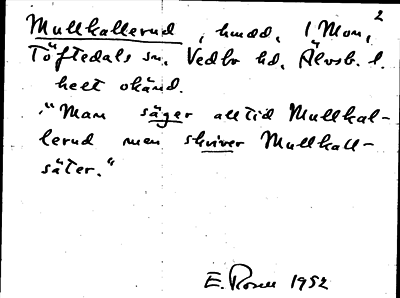 2
Mullkallerud, hmdd, 1 Mon,
Töftedals sn. Vedbo hd. Älvsb. l.
helt okänd.
"Man säger alltid Mullkal-
lerud men skriver Mullkall-
säter."
E. Rosell 1952